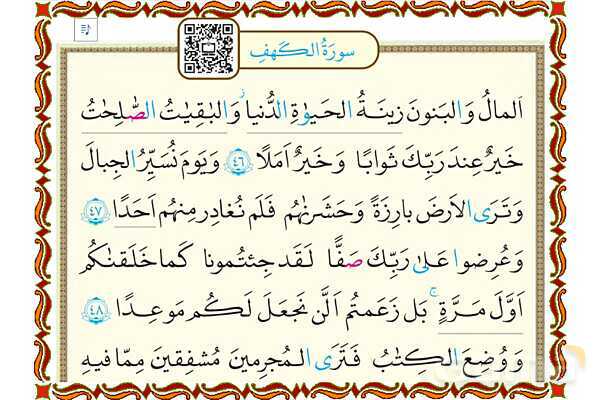 سورَةُ الـکَـهفِ
اَلمالُ وَالبَنونَ زينَـةُ الحَيـوٰةِ الدُّنيا ۖ وَالبٰقِيٰتُ الصّٰـلِحٰتُ
خَيرٌ عِندَ رَبِّكَ ثَوابًا وَخَيرٌ اَمَلًا ﴿٤٦﴾ وَيَومَ نُسَيِّرُ الجِبالَ
وَتَرَى الاَرضَ بارِزَةً وَحَشَرنٰهُم فَلَم نُغادِر مِنهُم اَحَدًا ﴿٤٧﴾
وَعُرِضوا عَلىٰ رَبِّكَ صَفًّا لَـقَد جِئتُمونا كَما خَلَقنٰكُم
اَوَّلَ مَـرَّةٍ ۚ بَل زَعَمتُم اَلَّن نَجعَلَ لَـكُم مَوعِـدًا ﴿٤٨﴾
وَوُضِعَ الـكِتٰبُ فَتَرَى المُجرِمينَ مُشفِقينَ مِمّا فيهِ